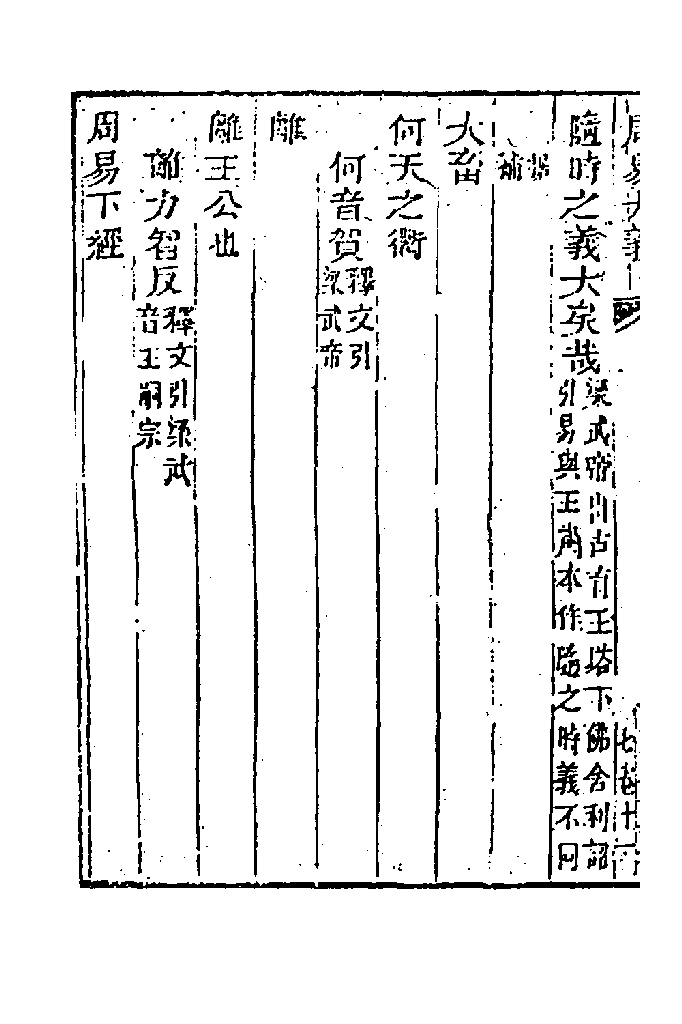 周易大義
隨時之義大矣哉梁武帝出古育王塔下佛舍利詔
引易與王肅本作隨之時義不同
補
大畜
何天之衢
何音賀釋文引
梁武帝
離
離王公也
離力智反釋文引梁武
音王嗣宗
周易下經